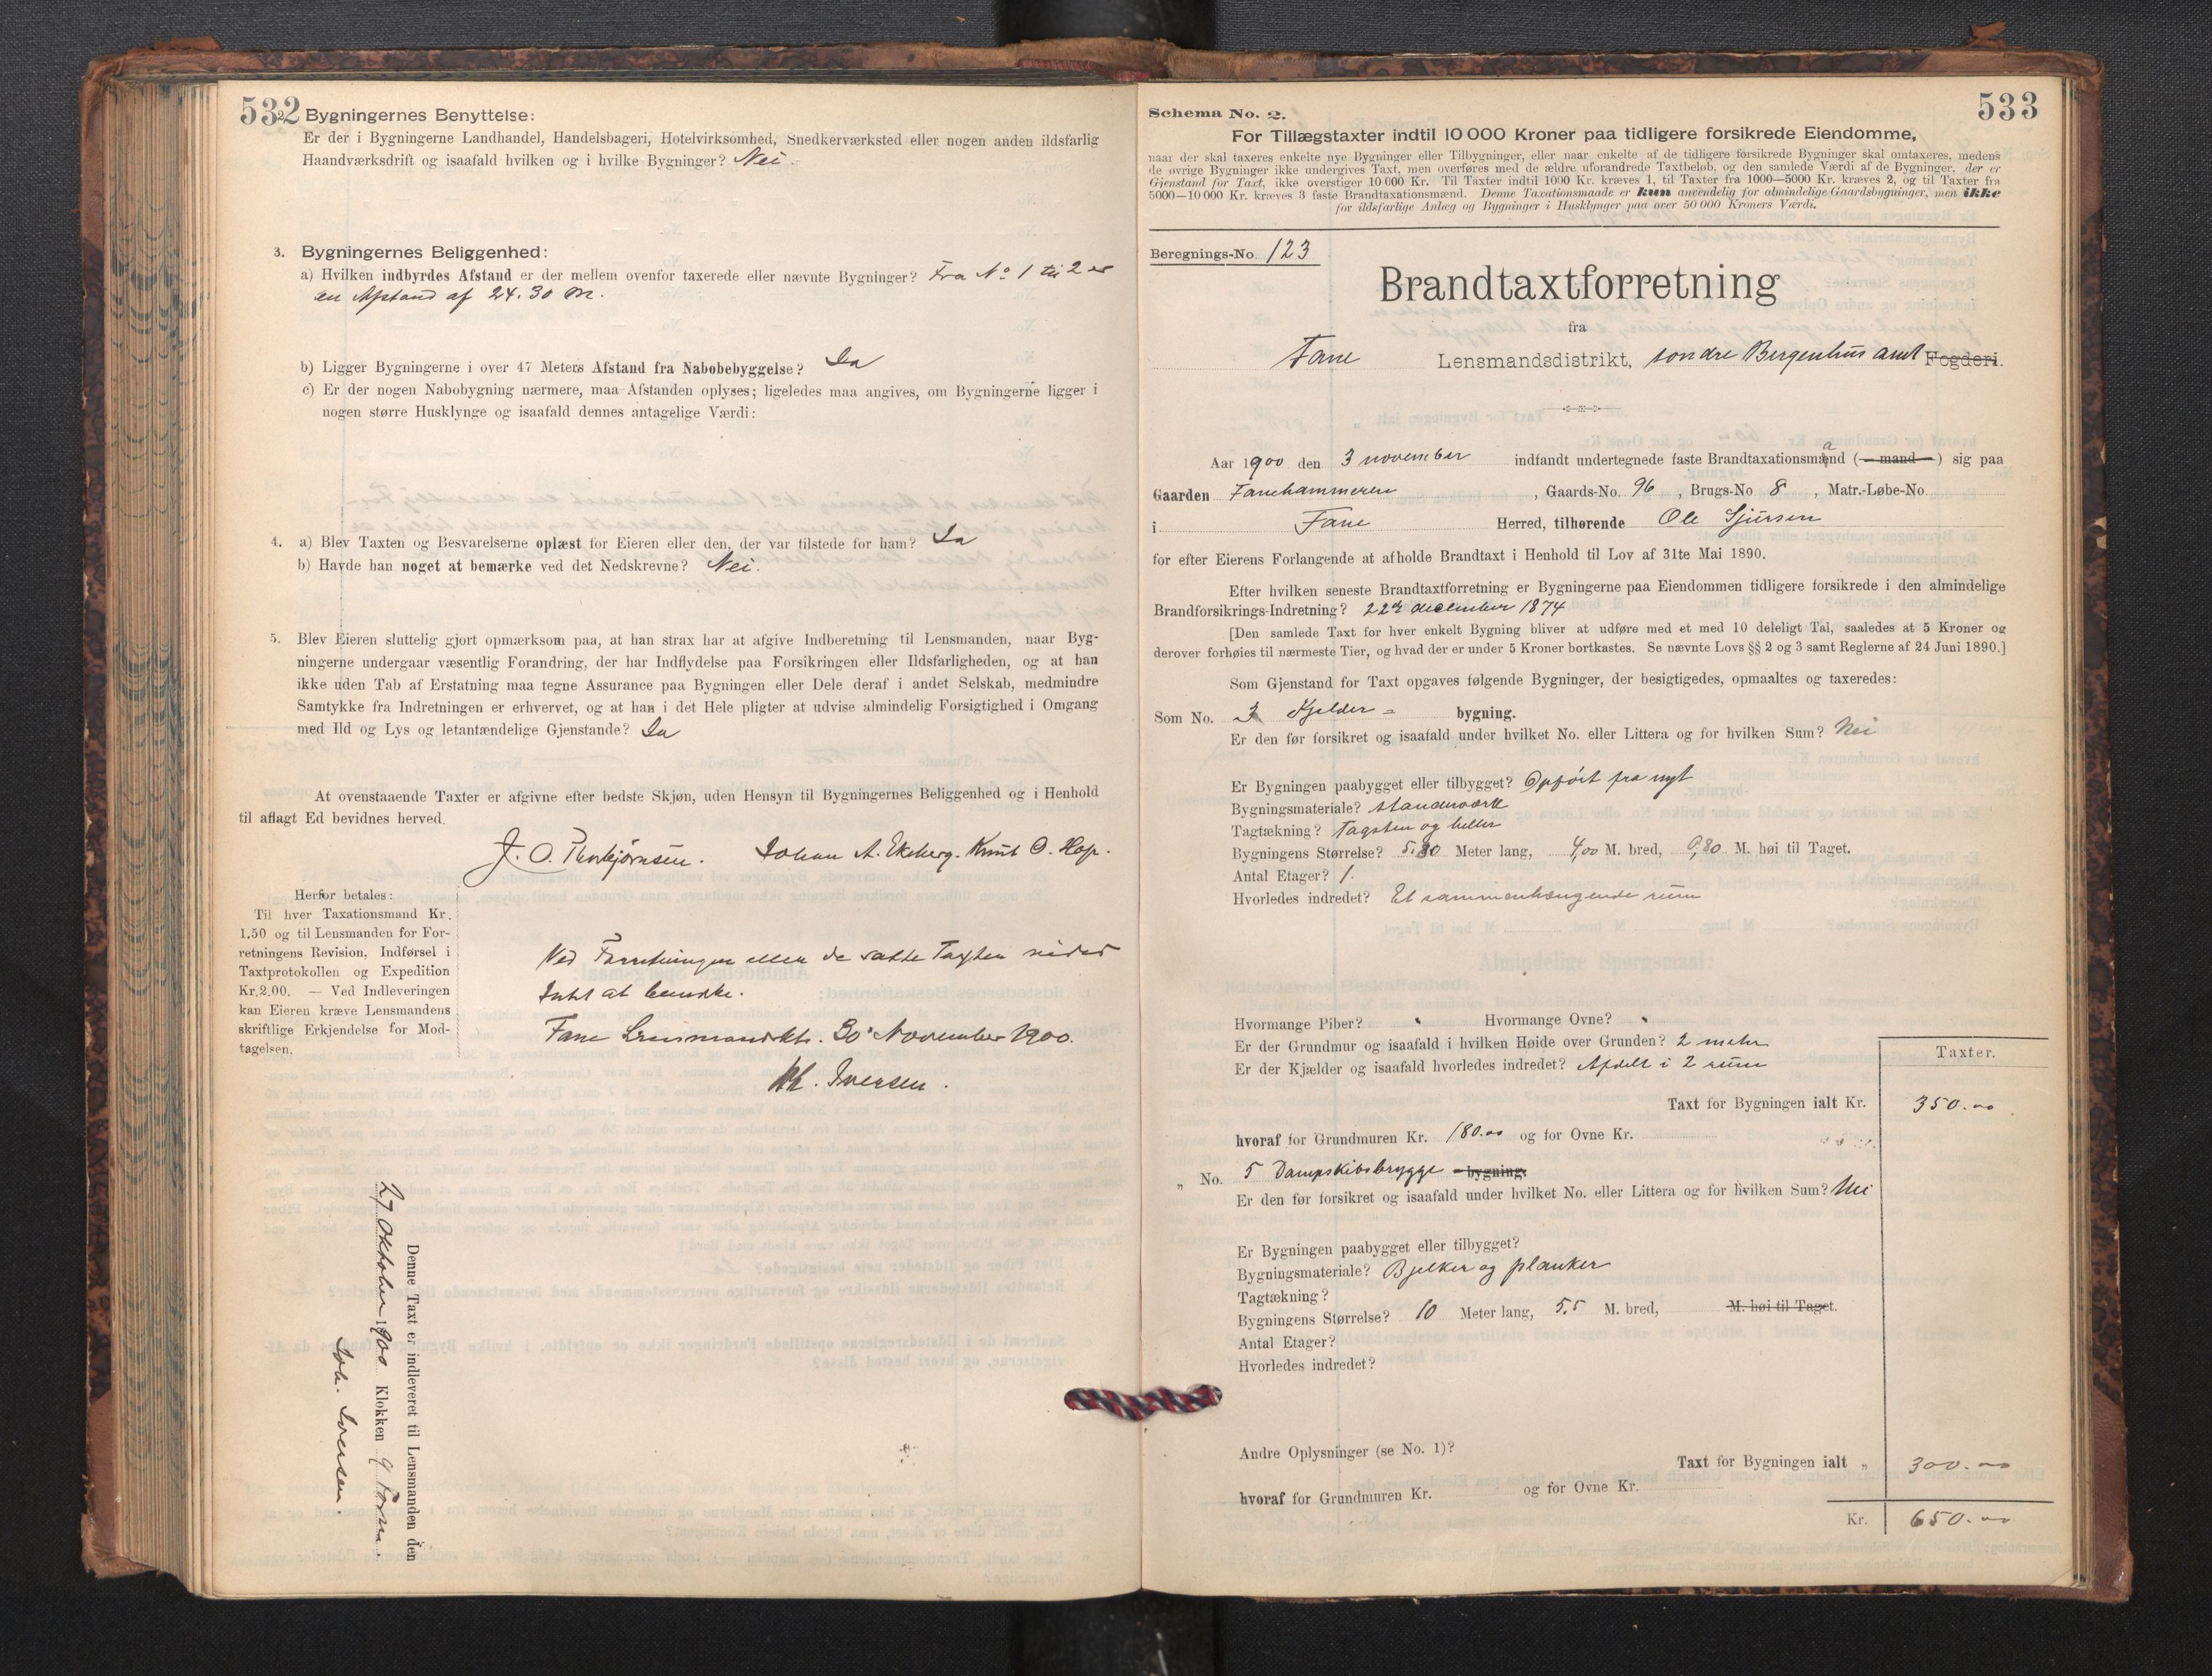 532
2. Bygningernes Benyttelse:
Er der i Bygningerne Landhandel, Handelsbageri, Hotelvirksomhed, Snedkerværksted eller nogen anden ildsfarlig
Haandværksdrift og isaafald hvilken og i hvilke Bygninger? Nei.
3. Bygningernes Beliggenhed:
a) Hvilken indbyrdes Afstand er der mellem ovenfor taxerede eller nævnte Bygninger? Fra No 1 til 2 er
en Afstand af 24.30 m.
b) Ligger Bygningerne i over 47 Meters Afstand fra Nabobebyggelse? Ja
c) Er der nogen Nabobygning nærmere, maa Afstanden oplyses; ligeledes maa angives, om Bygningerne ligger i
nogen større Husklynge og isaafald dennes antagelige Værdi:
4. a) Blev Taxten og Besvarelserne oplæst for Eieren eller den, der var tilstede for ham? Ja
b) Havde han noget at bemærke ved det Nedskrevne? Nei.
5. Blev Eieren sluttelig gjort opmærksom paa, at han strax har at afgive Indberetning til Lensmanden, naar Byg-
ningerne undergaar væsentlig Forandring, der har Indflydelse paa Forsikringen eller Ildsfarligheden, og at han
ikke uden Tab af Erstatning maa tegne Assurance paa Bygningen eller Dele deraf i andet Selskab, medmindre
Samtykke fra Indretningen er erhvervet, og at han i det Hele pligter at udvise almindelig Forsigtighed i Omgang
med Ild og Lys og letantændelige Gjenstande? Ja
At ovenstaaende Taxter er afgivne efter bedste Skjøn, uden Hensyn til Bygningernes Beliggenhed og i Henhold
til aflagt Ed bevidnes herved.
J. O. Thorbjørnsen. Johan A. Ekeberg. Knut O. Hop.
Herfor betales:
Til hver Taxationsmand Kr.
1.50 og til Lensmanden for For-
retningens Revision, Indførsel i
Taxtprotokollen og Expedition
Kr.2.00. — Ved Indleveringen
kan Eieren kræve Lensmandens
skriftlige Erkjendelse for Mod-
tagelsen.
Ved Forretningen eller de satte Taxter vides
Intet at bemerke.
Fane Lensmandsktr. 30 November 1900.
Iversen.
Denne Taxt er indleveret til Lensmanden den
27 Oktober 1900 Klokken 9 Form.
Joh. Iversen
533
Schema No. 2.
For Tillægstaxter indtil 10 000 Kroner paa tidligere forsikrede Eiendomme,
naar der skal taxeres enkelte nye Bygninger eller Tilbygninger, eller naar enkelte af de tidligere forsikrede Bygninger skal omtaxeres, medens
de øvrige Bygninger ikke undergives Taxt, men overføres med de ældre uforandrede Taxtbeløb, og den samlede Værdi af de Bygninger, der er
Gjenstand for Taxt, ikke overstiger 10 000 Kr. Til Taxter indtil 1000 Kr. kræves 1, til Taxter fra 1000—5000 Kr. kræves 2, og til Taxter fra
5000—10 000 Kr. kræves 3 faste Brandtaxationsmænd. Denne Taxationsmaade er kun anvendelig for almindelige Gaardsbygninger, men ikke
for ildsfarlige Anlæg og Bygninger i Husklynger paa over 50 000 Kroners Værdi.
Beregnings-No. 123
Brandtaxtforretning
fra
Fane Lensmandsdistrikt, søndre Bergenhus amt Fogderi.
Aar 1900 den 3 november indfandt undertegnede faste Brandtaxationsmand (— mand —) sig paa
Gaarden Fanehammeren, Gaards-No. 96, Brugs-No 8, Matr.-Løbe-No.
i Fane Herred, tilhørende Ole Sjursen
for efter Eierens Forlangende at afholde Brandtaxt i Henhold til Lov af 31te Mai 1890.
Efter hvilken seneste Brandtaxtforretning er Bygningerne paa Eiendommen tidligere forsikrede i den almindelige
Brandforsikrings-Indretning? 22de december 1874
[Den samlede Taxt for hver enkelt Bygning bliver at udføre med et med 10 deleligt Tal, saaledes at 5 Kroner og
derover forhøies til nærmeste Tier, og hvad der er under 5 Kroner bortkastes. Se nævnte Lovs §§ 2 og 3 samt Reglerne af 24 Juni 1890.]
Som Gjenstand for Taxt opgaves følgende Bygninger, der besigtigedes, opmaaltes og taxeredes:
Som No. 3 Kjelder- bygning.
Er den før forsikret og isaafald under hvilket No. eller Littera og for hvilken Sum? Nei
Er Bygningen paabygget eller tilbygget? Opført fra nyt
Bygningsmateriale? standerværk
Tagtækning? Tagsten og heller
Bygningens Størrelse? 5.80 Meter lang, 4,00 M. bred, 0,80 M. høi til Taget.
Antal Etager? 1.
Hvorledes indredet? Et sammenhængende rum
Hvormange Piber? Hvormange Ovne?
Er der Grundmur og isaafald i hvilken Høide over Grunden? 2 meter
Er der Kjælder og isaafald hvorledes indredet? Afdelt i 2 rum
Taxter.
Taxt for Bygningen ialt Kr. 350.00
hvoraf for Grundmuren Kr. 180.00 og for Ovne Kr.
„ No. 5 Dampskibsbrygge bygning.
Er den før forsikret og isaafald under hvilket No. eller Littera og for hvilken Sum? Nei
Er Bygningen paabygget eller tilbygget?
Bygningsmateriale? Bjelker og planker
Tagtækning?
Bygningens Størrelse? 10 Meter lang, 5,5 M. bred, M. høi til Taget.
Antal Etager?
Hvorledes indredet?
Andre Oplysninger (se No. 1)?
Taxt for Bygningen ialt „ 300.00
hvoraf for Grundmuren Kr. og for Ovne Kr.
Kr. 650.00